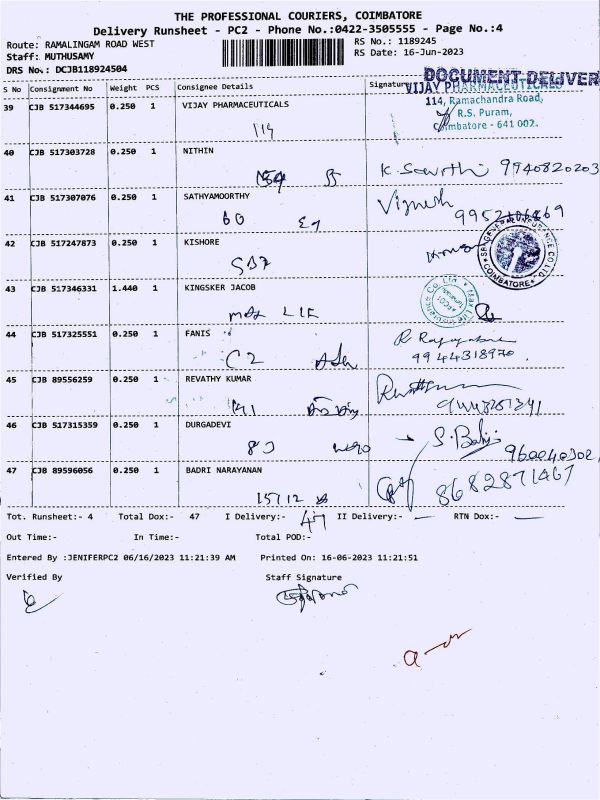 THE PROFESSIONAL COURIERS, COIMBATORE
Delivery Runsheet - PC2 - Phone No.:0422-3505555 - Page No.:4
Route: RAMALINGAM ROAD WEST
RS No.: 1189245
Staff: MUTHUSAMY
RS Date: 16-Jun-2023
DRS No.: DCJB118924504
DOCUMENT DELIVER
S No Consignment No Weight PCS Consignee Details Signature
39 CJB 517344695 0.250 1 VIJAY PHARMACEUTICALS
114
VIJAY PHARMACEUTICALS
114, Ramachandra Road,
R.S. Puram,
Coimbatore - 641 002.
40 CJB 517303728 0.250 1 NITHIN
9940820203
41 CJB 517307076 0.250 1 SATHYAMOORTHY
60
Vignesh
42 CJB 517247873 0.250 1 KISHORE
SBI GENERAL INSURANCE CO LTD
COIMBATORE
43 CJB 517346331 1.440 1 KINGSKER JACOB
max LIF
44 CJB 517325551 0.250 1 FANIS
C2
9944318970
45 CJB 89556259 0.250 1 REVATHY KUMAR
46 CJB 517315359 0.250 1 DURGADEVI
47 CJB 89596056 0.250 1 BADRI NARAYANAN
157/12
8682871467
Tot. Runsheet:- 4 Total Dox:- 47 I Delivery:- 47 II Delivery:- — RTN Dox:- —
Out Time:- In Time:- Total POD:-
Entered By :JENIFERPC2 06/16/2023 11:21:39 AM Printed On: 16-06-2023 11:21:51
Verified By Staff Signature